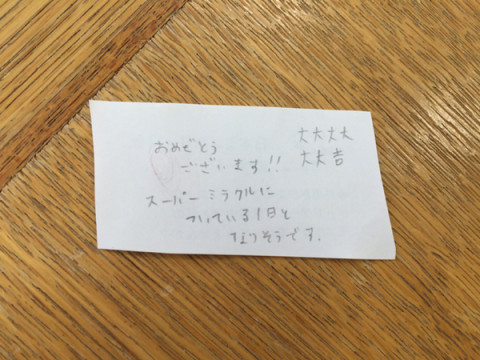 おめでとう
ございます!!
大大大大
大大吉
スーパーミラクルに
ついている1日と
なりそうです.